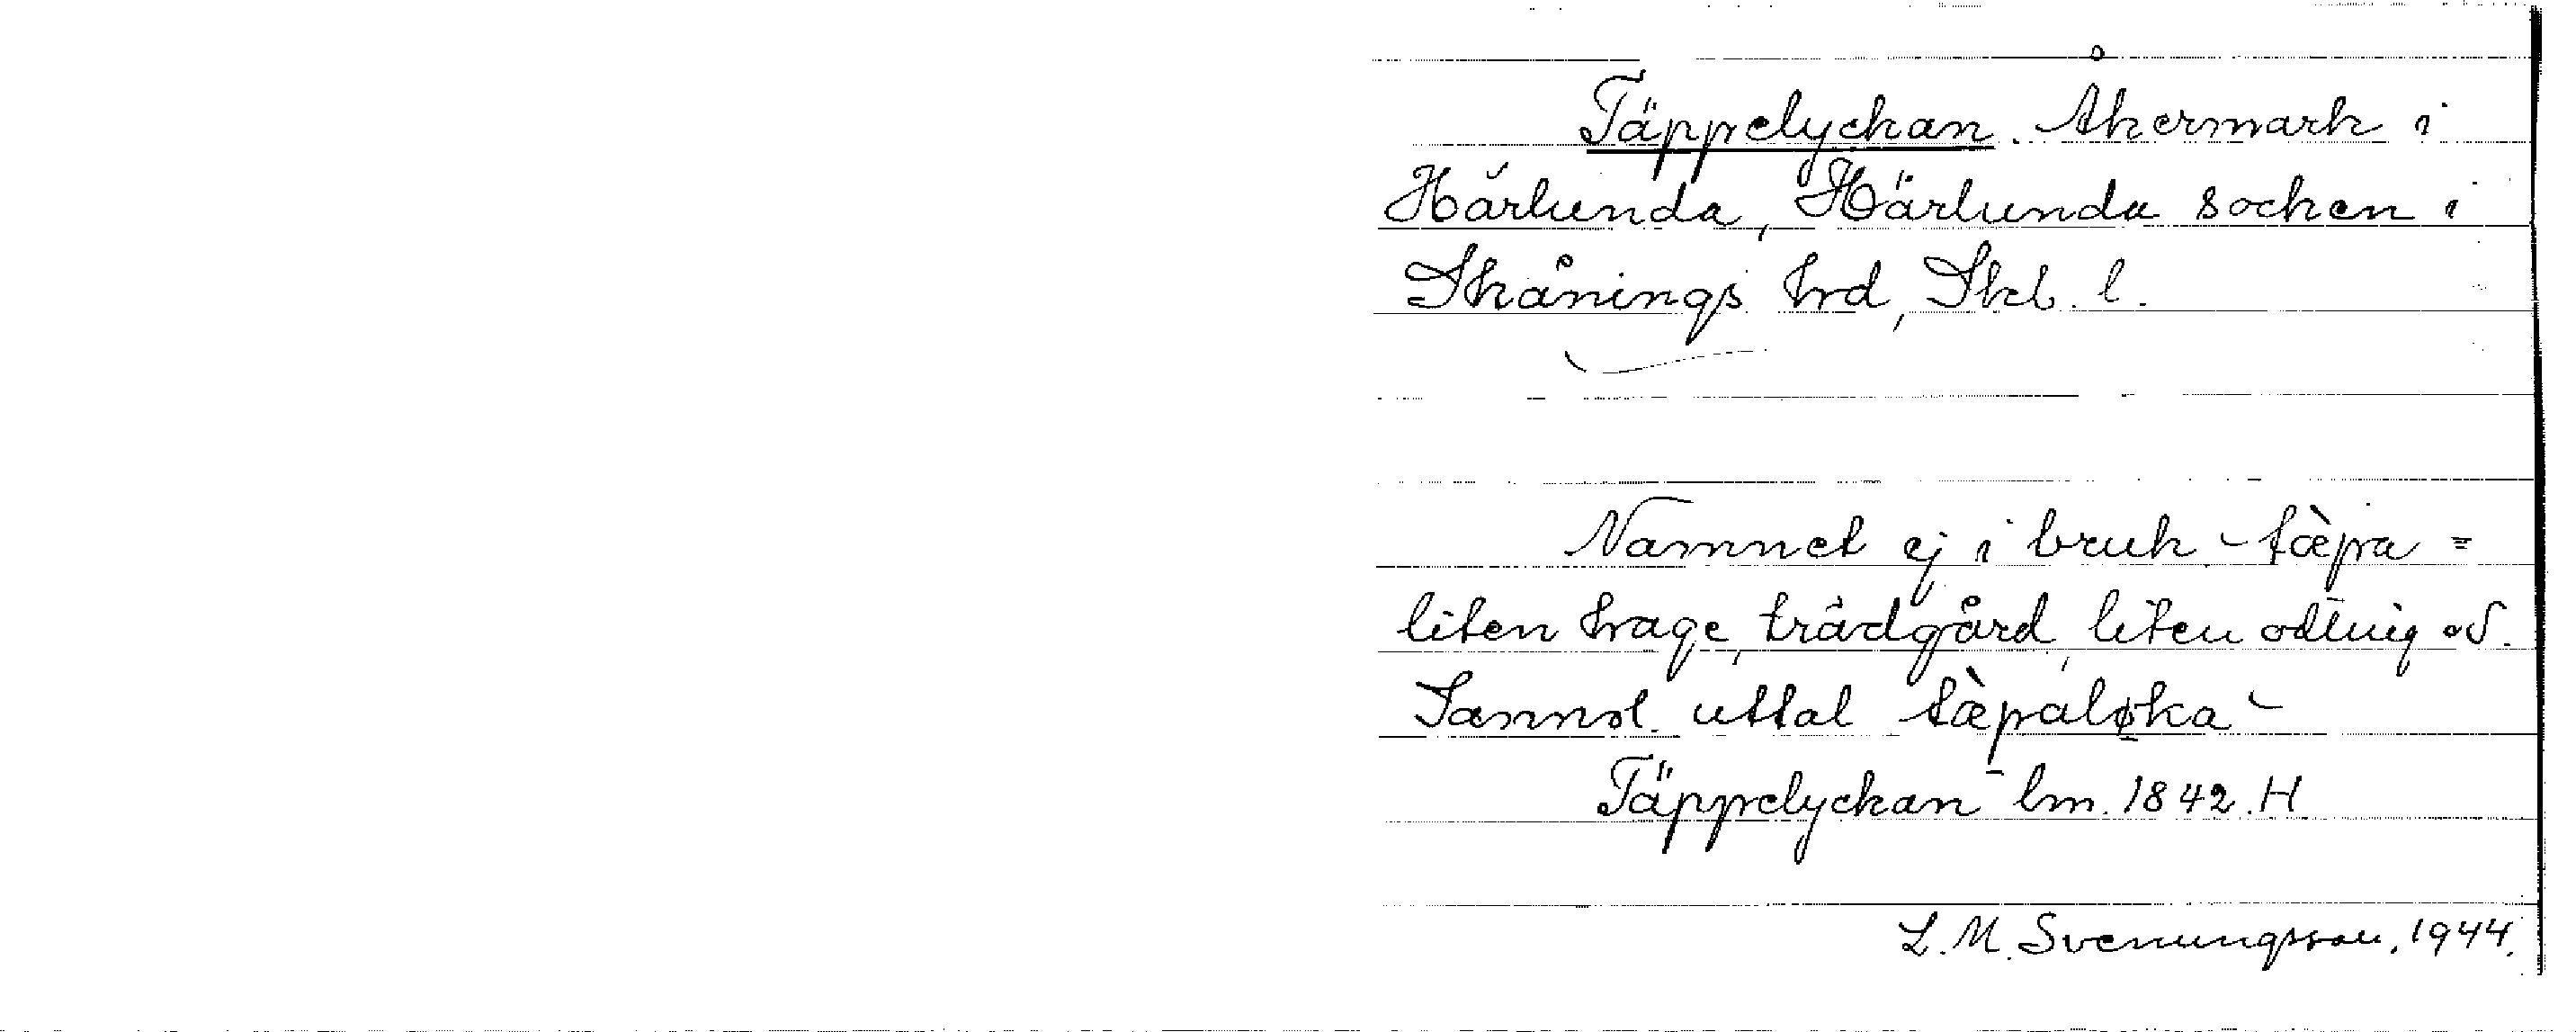 Täppelyckan. Åkermark i
Härlunda, Härlunda socken i
Skånings hrd, Skb. l.
Namnet ej i bruk - tæ̀pa =
liten hage, trädgård, liten odling o d.
Sannol. uttal tæ̀paløka -
Täppelyckan lm. 1842. H
L. M. Svenungsson, 1944.